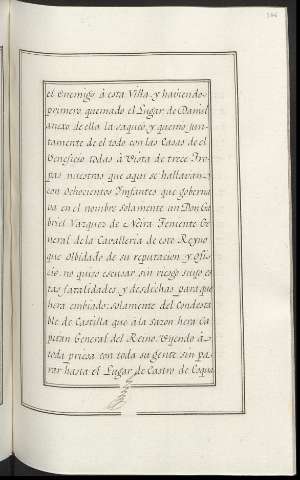 el Enemigo à esta Villa y habiendo
primero quemado el Lugar de Daniel
anexo de ella la saqueo y quemo jun-
tamente de el todo con las Casas de el
Beneficio todas à Vista de trece Tro-
pas nuestras que aqui se hallavan y
con Ochocientos Infantes que goberna
va en el nombre solamente un Don Ga
briel Vazquez de Neira Teniente Ge
neral de la Cavalleria de este Reyno
que olbidado de su reputacion y Ofi-
cio no quiso escusar sin riesgo suyo es
tas fatalidades y desdichas para que
hera embiado solamente del Condesta
ble de Castilla que a la sazon hera Ca
pitan General del Reino. Viendo à
toda priesa con toda su gente sin pa
rar hasta el Lugar de Castro de